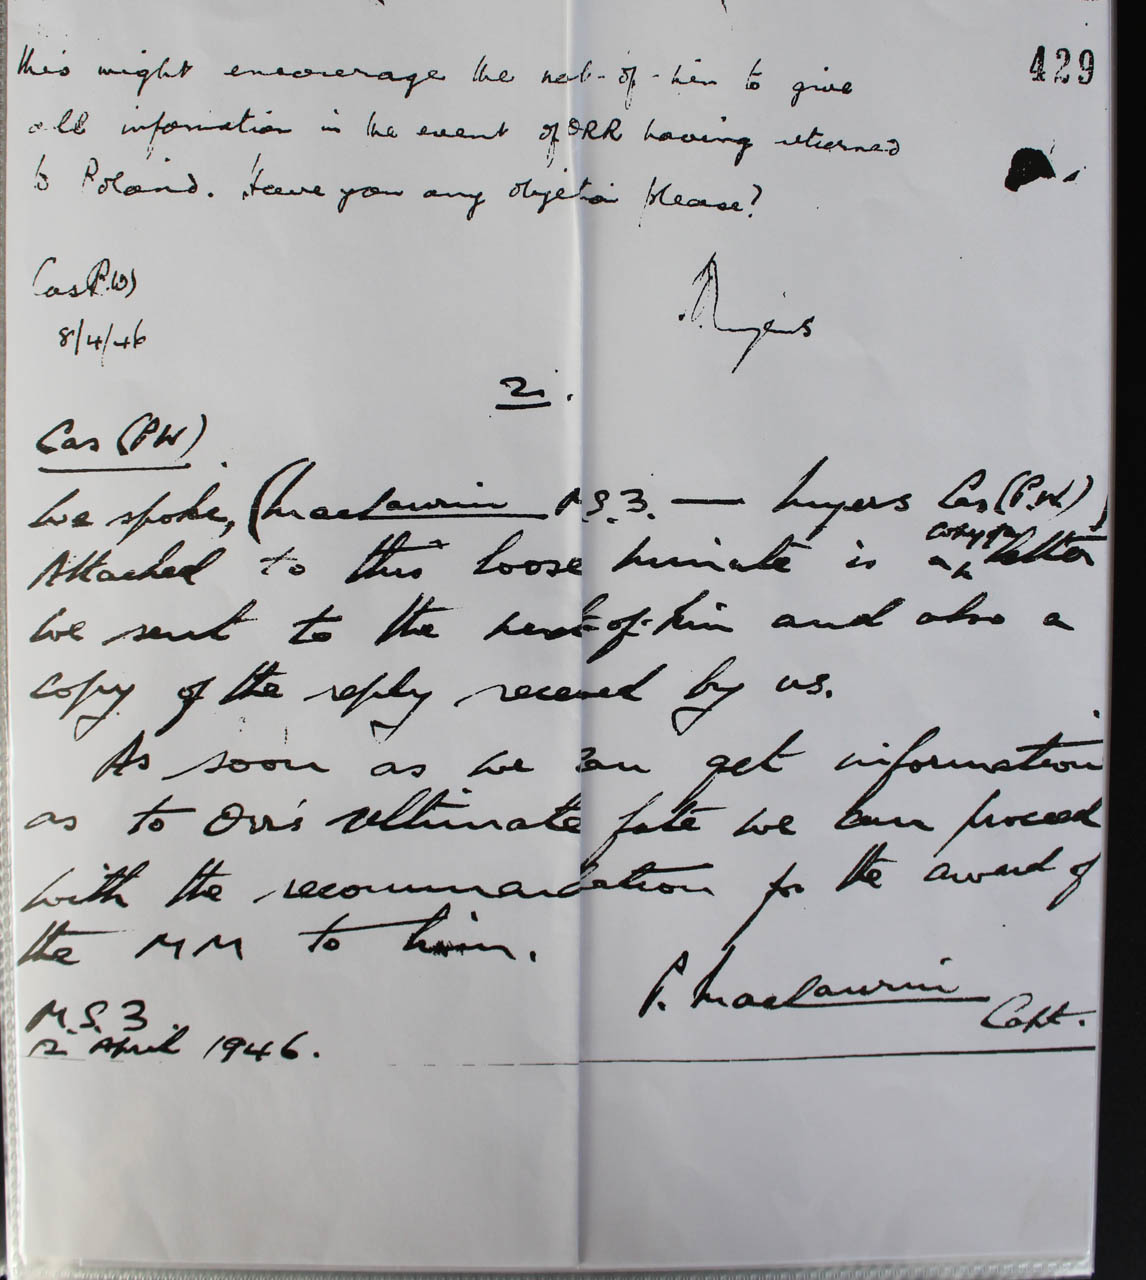 429
this might encourage the next-of-kin to give
all information in the event of ORR having returned
to Poland. Have you any objection please?
Cas(P.W)
8/4/46
2.
Cas (PW)
We spoke, (Maclaurin M.S.3. — Myers Cas (P.W.)
Attached to this loose minute is a copy of letter
we sent to the next-of-kin and also a
copy of the reply received by us.
As soon as we can get information
as to Orr's ultimate fate we can proceed
with the recommendation for the award of
the MM to him.
P. Maclaurin
Capt.
M.S.3.
12 April 1946.